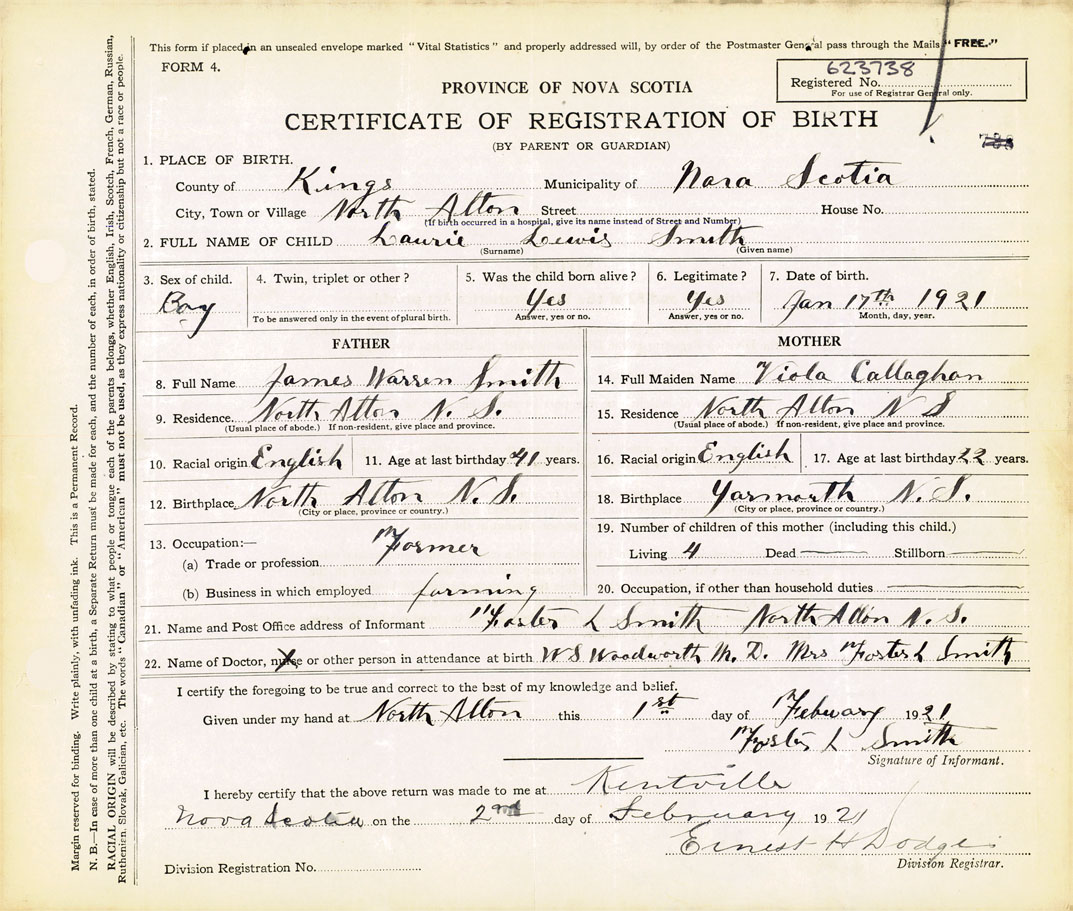 This form if placed in an unsealed envelope marked "Vital Statistics" and properly addressed will, by order of the Postmaster General pass through the Mails "FREE."
FORM 4.
623738
Registered No.
For use of Registrar General only.
PROVINCE OF NOVA SCOTIA
CERTIFICATE OF REGISTRATION OF BIRTH
(BY PARENT OR GUARDIAN)
1. PLACE OF BIRTH.
County of Kings Municipality of Nova Scotia
City, Town or Village North Alton Street House No.
(If birth occurred in a hospital, give its name instead of Street and Number)
2. FULL NAME OF CHILD Laurie Lewis Smith
(Surname) (Given name)
3. Sex of child. 4. Twin, triplet or other? 5. Was the child born alive? 6. Legitimate? 7. Date of birth.
Boy Yes Yes Jan 17th 1921
To be answered only in the event of plural birth. Answer, yes or no. Answer, yes or no. Month, day, year.
FATHER MOTHER
8. Full Name James Warren Smith 14. Full Maiden Name Viola Callaghan
9. Residence. North Alton N. S. 15. Residence North Alton N S
(Usual place of abode.) If non-resident, give place and province. (Usual place of abode.) If non-resident, give place and province.
10. Racial origin English 11. Age at last birthday 41 years. 16. Racial origin English 17. Age at last birthday 22 years.
12. Birthplace North Alton N. S. 18. Birthplace Yarmouth N. S.
(City or place, province or country.) (City or place, province or country.)
19. Number of children of this mother (including this child.)
13. Occupation:— Farmer
Living 4 Dead Stillborn
(a) Trade or profession
(b) Business in which employed farming 20. Occupation, if other than household duties
21. Name and Post Office address of Informant Foster L Smith North Alton N. S.
22. Name of Doctor, nurse or other person in attendance at birth W S Woodworth M. D. Mrs Foster L Smith
I certify the foregoing to be true and correct to the best of my knowledge and belief.
Given under my hand at North Alton this 1st day of Febuary 1921
Foster L Smith
Signature of Informant.
I hereby certify that the above return was made to me at Kentville
Nova Scotia on the 2nd day of February 1921
Ernest H Dodge
Division Registrar.
Division Registration No.
Margin reserved for binding. Write plainly, with unfading ink. This is a Permanent Record.
N. B.—In case of more than one child at a birth, a Separate Return must be made for each, and the number of each, in order of birth, stated.
RACIAL ORIGIN will be described by stating to what people or tongue each of the parents belongs, whether English, Irish, Scotch, French, German, Russian,
Ruthenien, Slovak, Galician, etc. The words "Canadian" or "American" must not be used, as they express nationality or citizenship but not a race or people.